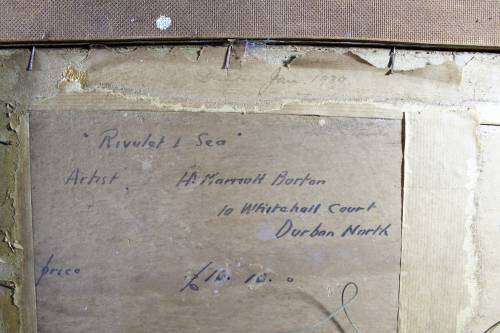 Jan 1930
"Rivulet & Sea"
Artist H. Marriott Burton
10 Whitehall Court
Durban North
price £10. 10. 0